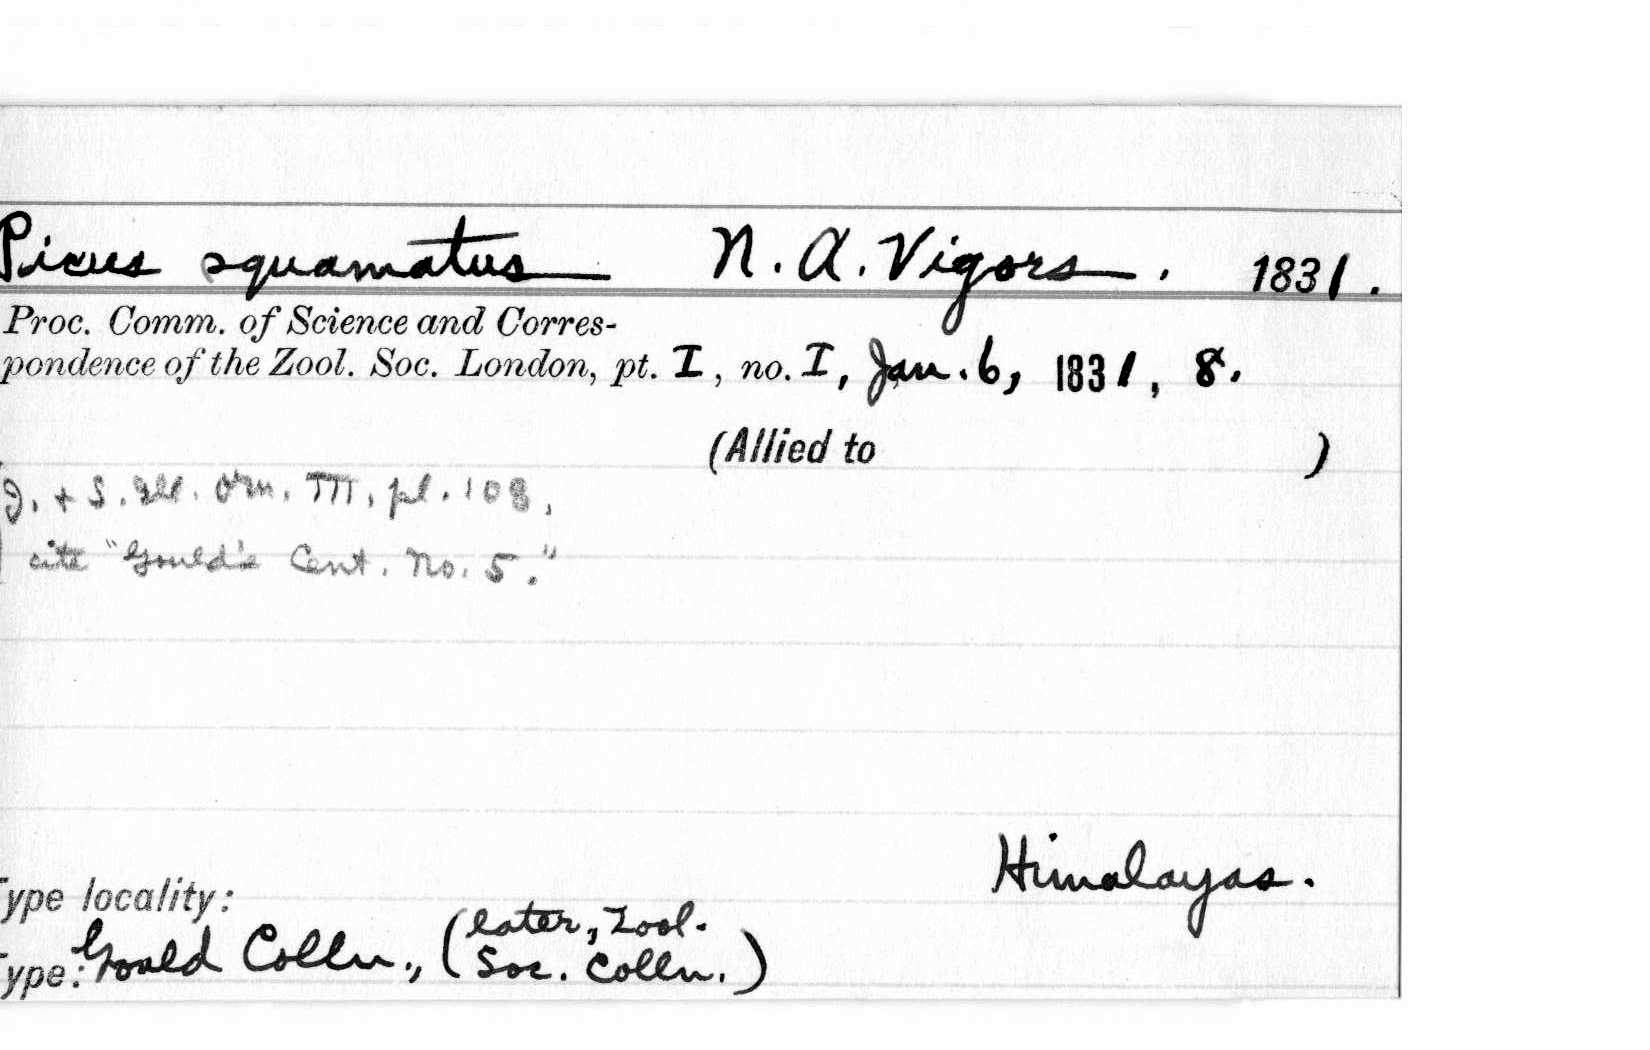 Picus squamatus N. A. Vigors. 1831.
Proc. Comm. of Science and Corres-
pondence of the Zool. Soc. London, pt. I, no. I, Jan. 6, 1831, 8.
(Allied to )
J. + S. Ill. Orn. III, pl. 108,
cite "Gould's Cent. No. 5."
Himalayas.
Type locality:
(later, Zool.
Type: Gould Colln., Soc. Colln.)